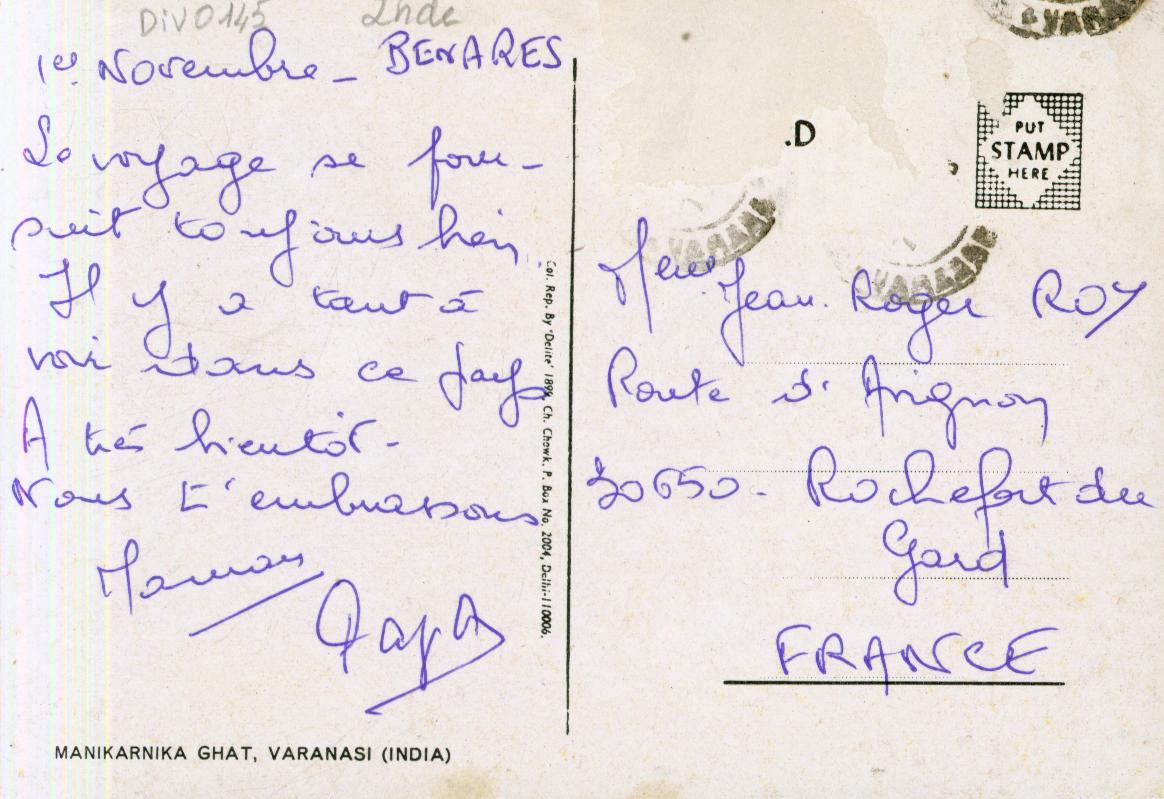 DIV0145 Inde
1er Novembre - BENARES
Le voyage se pour-
suit toujours bien,
Il y a tant à
voir dans ce pays
A très bientôt-
Nous t'embrassons
Maman
Papa
MANIKARNIKA GHAT, VARANASI (INDIA)
Col. Rep. By 'Delite' 1899, Ch. Chowk. P. Box No. 2004, Delhi-110006.
.D
PUT
STAMP
HERE
Jean Roger ROY
Route d'Avignon
30650 - Rochefort du
Gard
FRANCE